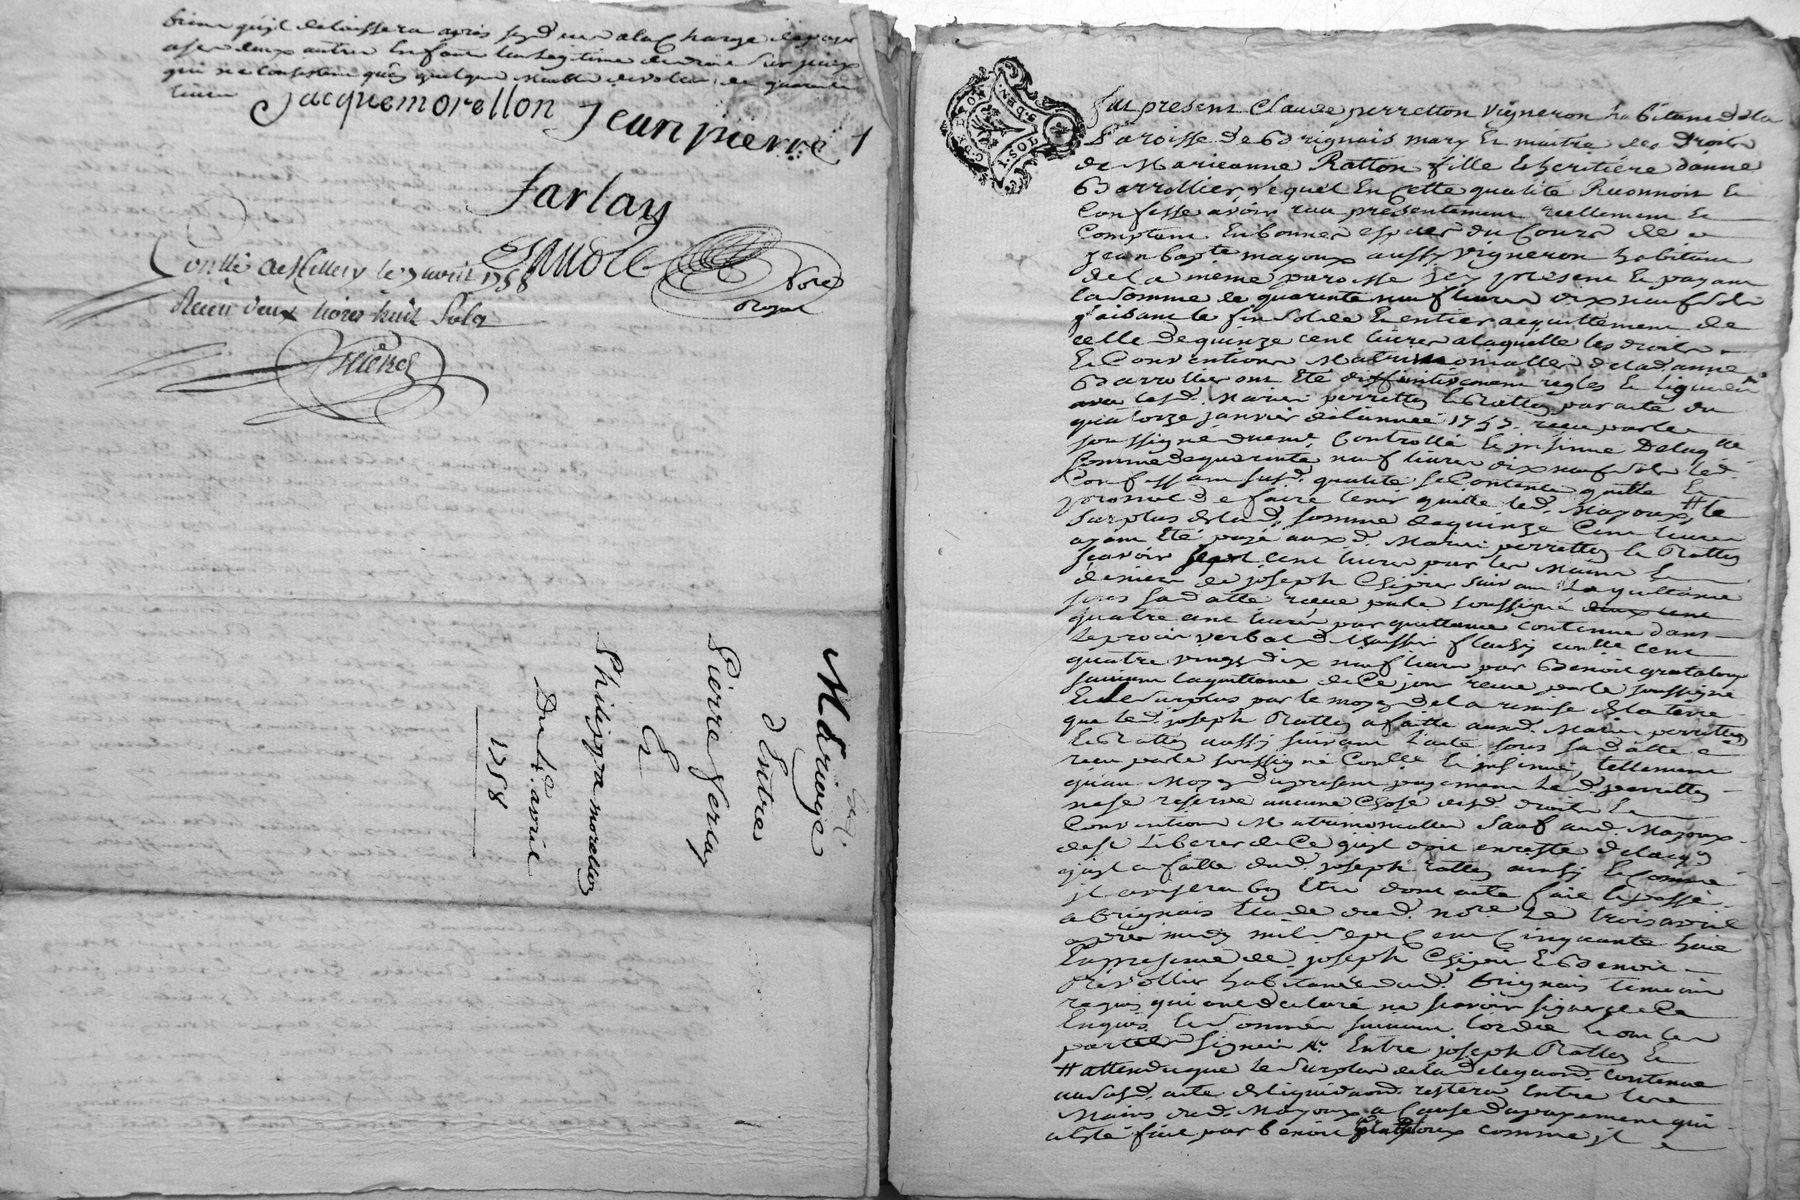 bien qu'il delaissera apres son deces a la Charge de payer
a ses deux autres Enfans
qui ne Consistent qu'en quelques Meubles de valeur de quarante
livres
Jacquemorellon Jean pierre
farlay
Conllé a Millery le 7 avril 1758
Recu deux livres huit sols
nore
Royal
Mariage
d'Entre
Pierre ferlay
Et
Philippa morellon
Du 4e. avril
1758
1.SOL
fut present Claude perretton Vigneron habitant de la
Paroisse de Brignais mary Et maitre des Droits
de Marieanne Ratton fille Et heritiere danne
Barrollier lequel En Cette qualité Reconnoit Et
Confesse avoir recu presentement reellement Et
Comptant En bonnes especes du Cours de
jean bapte mayoux aussy Vigneron habitant
de la meme paroisse icy present Et payant
la somme de quarante neuf livres dix neuf sols
faisant le fin solde Et entier acquittement de
celle de quinze cent livres a laquelle les droits
Et Conventions Matrimonialles de lad. anne
Barrollier ont Eté diffinitivement regles Et liquidés
avec lesd. Mariés perretton Et Ratton par acte du
quatorze janvier de l'année 1757. recu par le
soussigné duement Controllé Et insinué De laq.lle
somme de quarante neuf livres dix neuf sols led.
Confessant susd. qualité se Contente quitte Et
promet de faire tenir quitte led. Mayoux, # le
surplus de lad. somme de quinze Cent livres
ayant Eté payé auxd. Mariés perretton Et Ratton
scavoir sept cent livres par les Mains Et
deniers de joseph Chipier suivant la quittance
sous sa datte recue par le soussigné
quatre cent livres par quittance contenue dans
le procés verbal cent
quatre vingt dix neuf livres par Benoit grataloup
suivant la quittance de Ce jour recue par le soussigné
Et le surplus par le moyen de la remise de la terre
que led. joseph Ratton a faitte auxd. Mariés perretton
Et Ratton aussi suivant l'acte sous sa datte
recu par le soussigné Conllé Et insinué, tellement
qu'au Moyen du present payement led. perretton
ne se reserve aucune Chose desd. droits Et
Conventions Matrimonialles sauf aud. Mayoux
de se Liberer de Ce qu'il doit en reste de l'acquis.
qu'il a faitte dud. joseph ratton ainsi Et Comme
il avisera bon Etre dont acte fait Et passé
a Brignais Etude dud. nore Le trois avril
apres midy mil sept Cent Cinquante huit
En presence de joseph Chipier Et Benoit
habitants dud. Brignais temoins
requis qui ont declaré ne scavoir signer de Ce
Enquis Et sommés suivant l'ordce non les
parties Signer Entre joseph Ratton Et
# attendu que le surplus de la delegaon. contenue
aud. acte de liquidaon. restera Entre les
Mains dud. Mayoux a Cause du payement qui
a Eté fait par benoit grataloux comme il